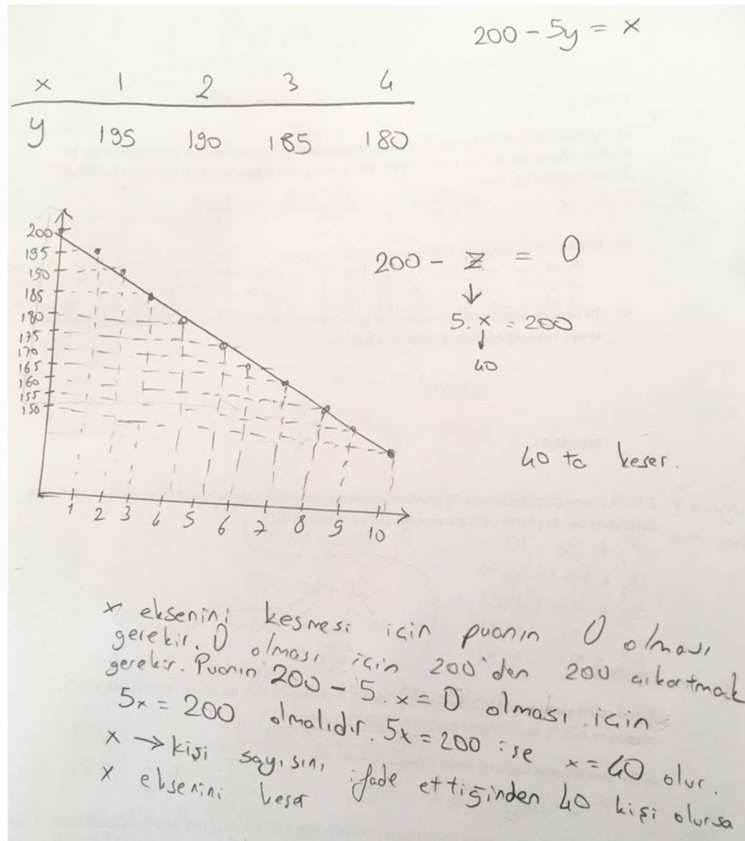 200 - 5y = x
x 1 2 3 4
y 195 190 185 180
200
195
190
185
180
175
170
165
160
155
150
1 2 3 4 5 6 7 8 9 10
200 - z = 0
↓
5.x = 200
↓
40
40 ta keser.
x eksenini kesmesi için puanın 0 olması
gerekir. 0 olması için 200'den 200 çıkartmak
gerekir. Puanın 200 - 5.x = 0 olması için
5x = 200 olmalıdır. 5x = 200 ise x = 40 olur.
x → kişi sayısını ifade ettiğinden 40 kişi olursa
x eksenini keser